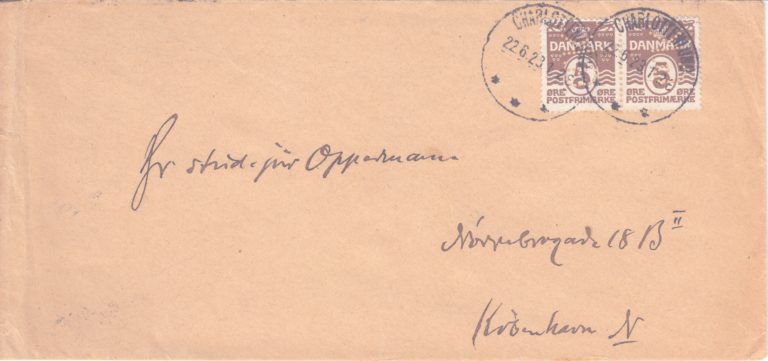 CHARLOTTENLUND
22.6.23.1
DANMARK
5
ØRE ØRE
POSTFRIMÆRKE
CHARLOTTENLUND
DANMARK
5
ØRE ØRE
POSTFRIMÆRKE
Hr stud. jur Oppermann
Nörrebrogade 18 B II
København N